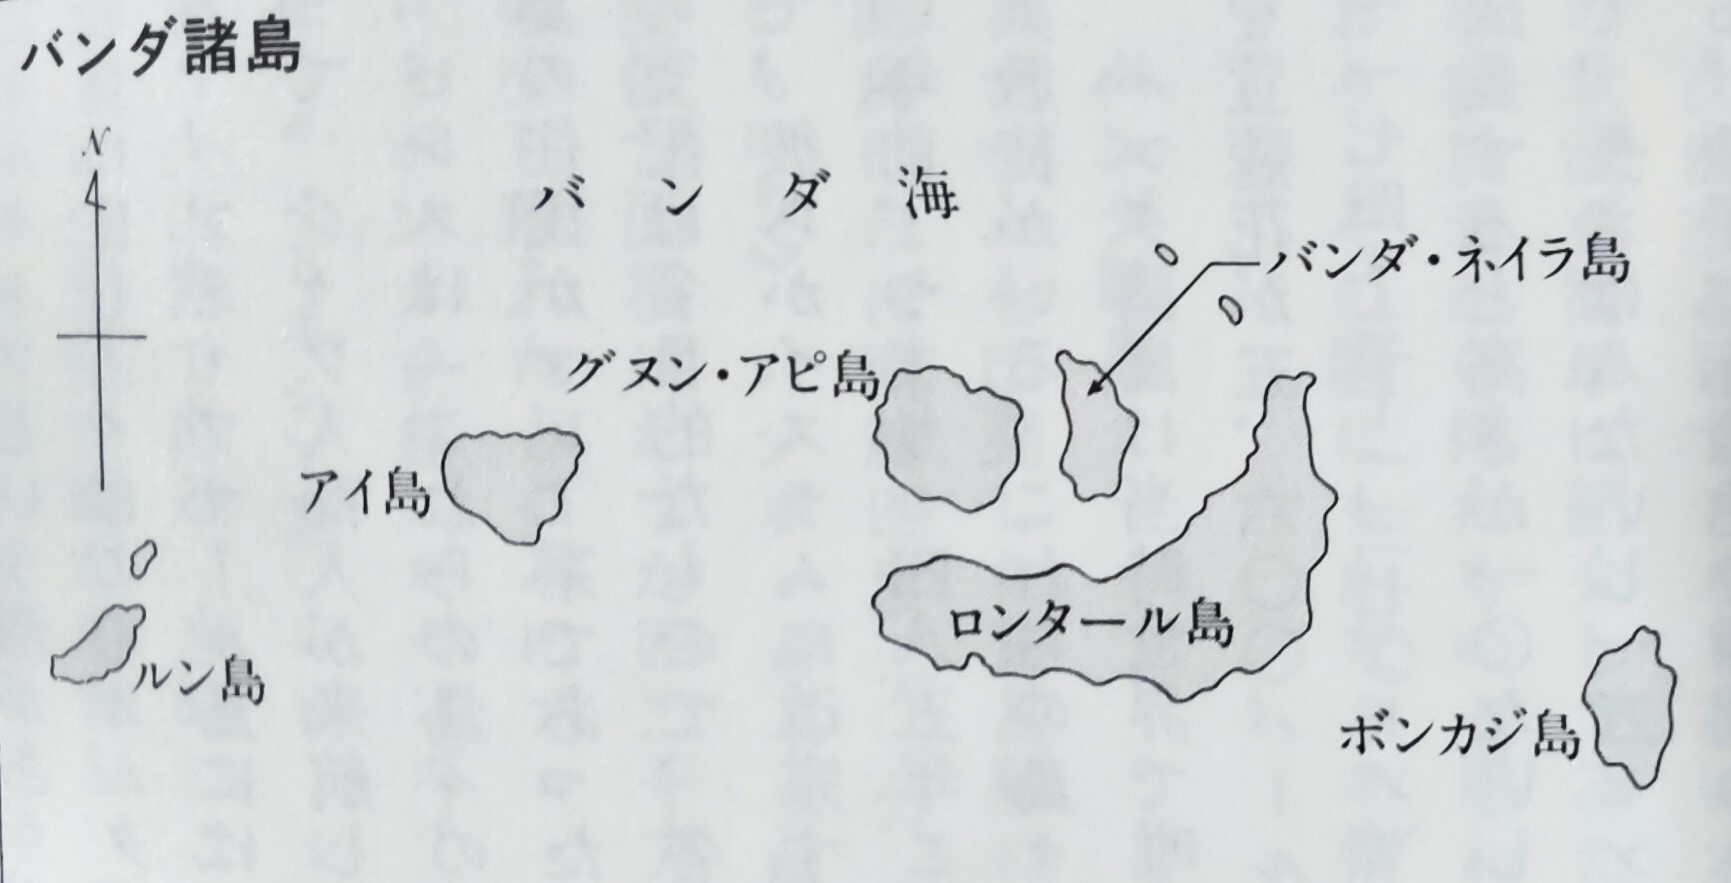 バンダ諸島
N
バンダ海
バンダ・ネイラ島
グヌン・アピ島
アイ島
ロンタール島
ルン島
ボンカジ島